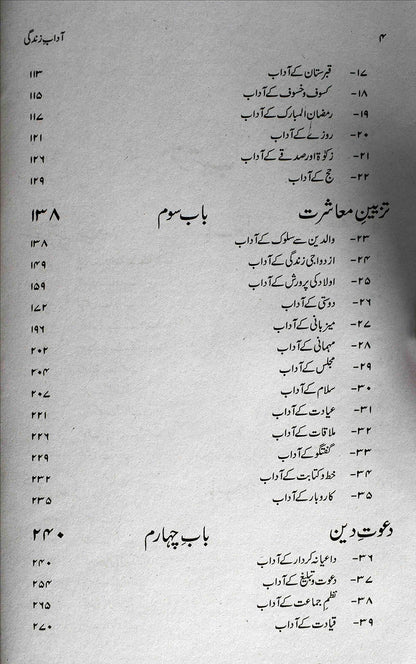 ۴ آدابِ زندگی
۱۷- قبرستان کے آداب ۱۱۳
۱۸- کسوف و خسوف کے آداب ۱۱۵
۱۹- رمضان المبارک کے آداب ۱۱۷
۲۰- روزے کے آداب ۱۲۱
۲۱- زکوٰۃ اور صدقے کے آداب ۱۲۶
۲۲- حج کے آداب ۱۲۹
تزیینِ معاشرت باب سوم ۱۳۸
۲۳- والدین سے سلوک کے آداب ۱۳۸
۲۴- ازدواجی زندگی کے آداب ۱۴۹
۲۵- اولاد کی پرورش کے آداب ۱۵۹
۲۶- دوستی کے آداب ۱۷۲
۲۷- میزبانی کے آداب ۱۹۶
۲۸- مہمانی کے آداب ۲۰۲
۲۹- مجلس کے آداب ۲۰۴
۳۰- سلام کے آداب ۲۰۷
۳۱- عیادت کے آداب ۲۲۱
۳۲- ملاقات کے آداب ۲۲۶
۳۳- گفتگو کے آداب ۲۲۹
۳۴- خط و کتابت کے آداب ۲۳۲
۳۵- کاروبار کے آداب ۲۳۵
دعوتِ دین بابِ چہارم ۲۴۰
۳۶- داعیانہ کردار کے آداب ۲۴۰
۳۷- دعوت و تبلیغ کے آداب ۲۵۴
۳۸- نظمِ جماعت کے آداب ۲۶۵
۳۹- قیادت کے آداب ۲۷۰